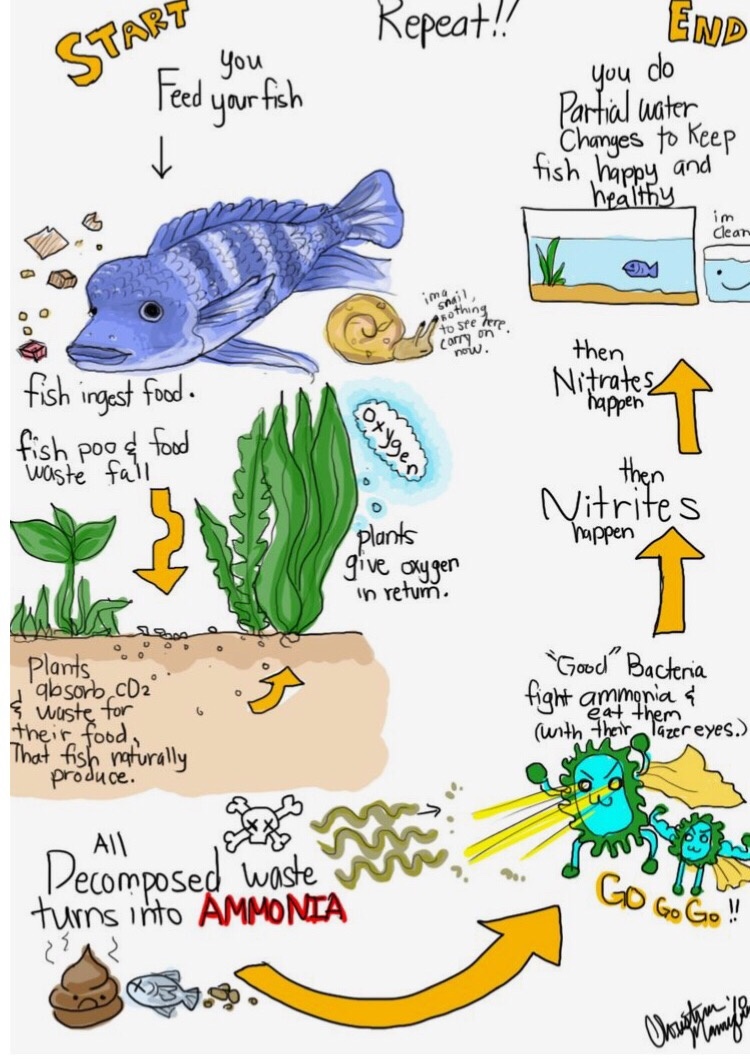 START
you
Feed your fish
fish ingest food.
im a
snail,
nothing
to see here
carry on
now.
fish poo & food
waste fall
oxygen
plants
give oxygen
in return.
Plants
absorb CO2
& waste for
their food,
That fish naturally
produce.
All
Decomposed waste
turns into AMMONIA
"Good" Bacteria
fight ammonia &
eat them
(with their lazer eyes.)
GO GO GO !!
then
Nitrites
happen
then
Nitrates
happen
END
you do
Partial water
Changes to Keep
fish happy and
healthy
im
clean
Repeat!!